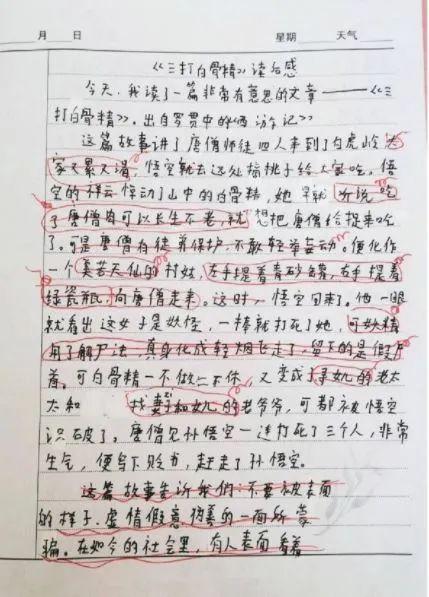 月 日 星期 天气
《三打白骨精》读后感
今天,我读了一篇非常有意思的文章——《三
打白骨精》。出自罗贯中的《西游记》
这篇故事讲了唐僧师徒四人来到了白虎岭大
家又累又渴,悟空就去远处摘桃子给大家吃。悟
空的祥云惊动了山中的白骨精,她早就听说吃
了唐僧肉可以长生不老,就想把唐僧给捉来吃
了。可是唐僧有徒弟保护,不敢轻举妄动。便化作
一个美若天仙的村妓,左手提着青砂罐,右手提着
绿瓷瓶,向唐僧走来。这时,悟空回来了。他一眼
就看出这女子是妖怪,一棒就打死了她,可妖精
用了解尸法,真身化成轻烟飞走了,留下的是假尸
首。可白骨精一不做二不休,又变成了寻女儿的老太
太和 找妻子和女儿的老爷爷,可都被悟空
识破了。唐僧见孙悟空一连打死了三个人,非常
生气,便写下贬书,赶走了孙悟空。
这篇故事告诉我们:不要被表面
的样子、虚情假意伪善的一面所蒙
骗。在如今的社会里,有人表面看着